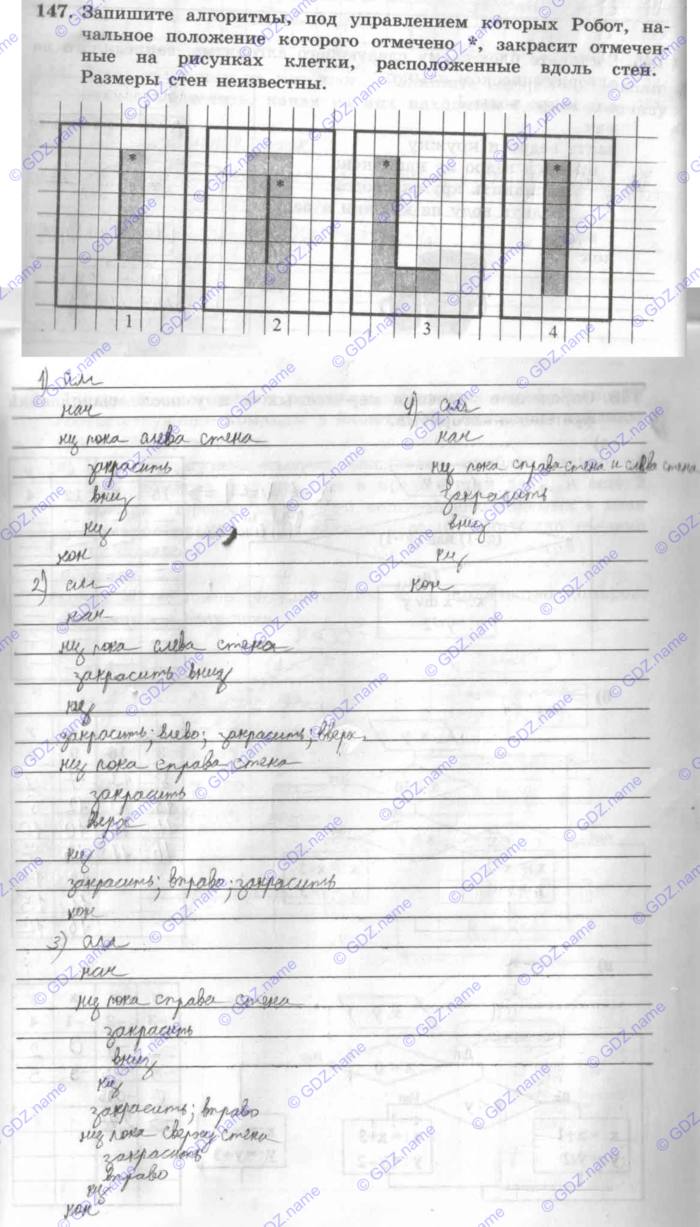 147. Запишите алгоритмы, под управлением которых Робот, на-
чальное положение которого отмечено *, закрасит отмечен-
ные на рисунках клетки, расположенные вдоль стен.
Размеры стен неизвестны.
* * * *
1 2 3 4
1) алг
нач
нц пока слева стена
закрасить
вниз
кц
кон
2) алг
нач
нц пока слева стена
закрасить вниз
кц
закрасить; влево; закрасить; вверх.
нц пока справа стена
закрасить
вверх
кц
закрасить; вправо; закрасить
кон
3) алг
нач
нц пока справа стена
закрасить
вниз
кц
закрасить; вправо
нц пока сверху стена
закрасить
вправо
кц
кон
4) алг
нач
нц пока справа стена и слева стена
закрасить
вниз
кц
кон
© GDZ.name